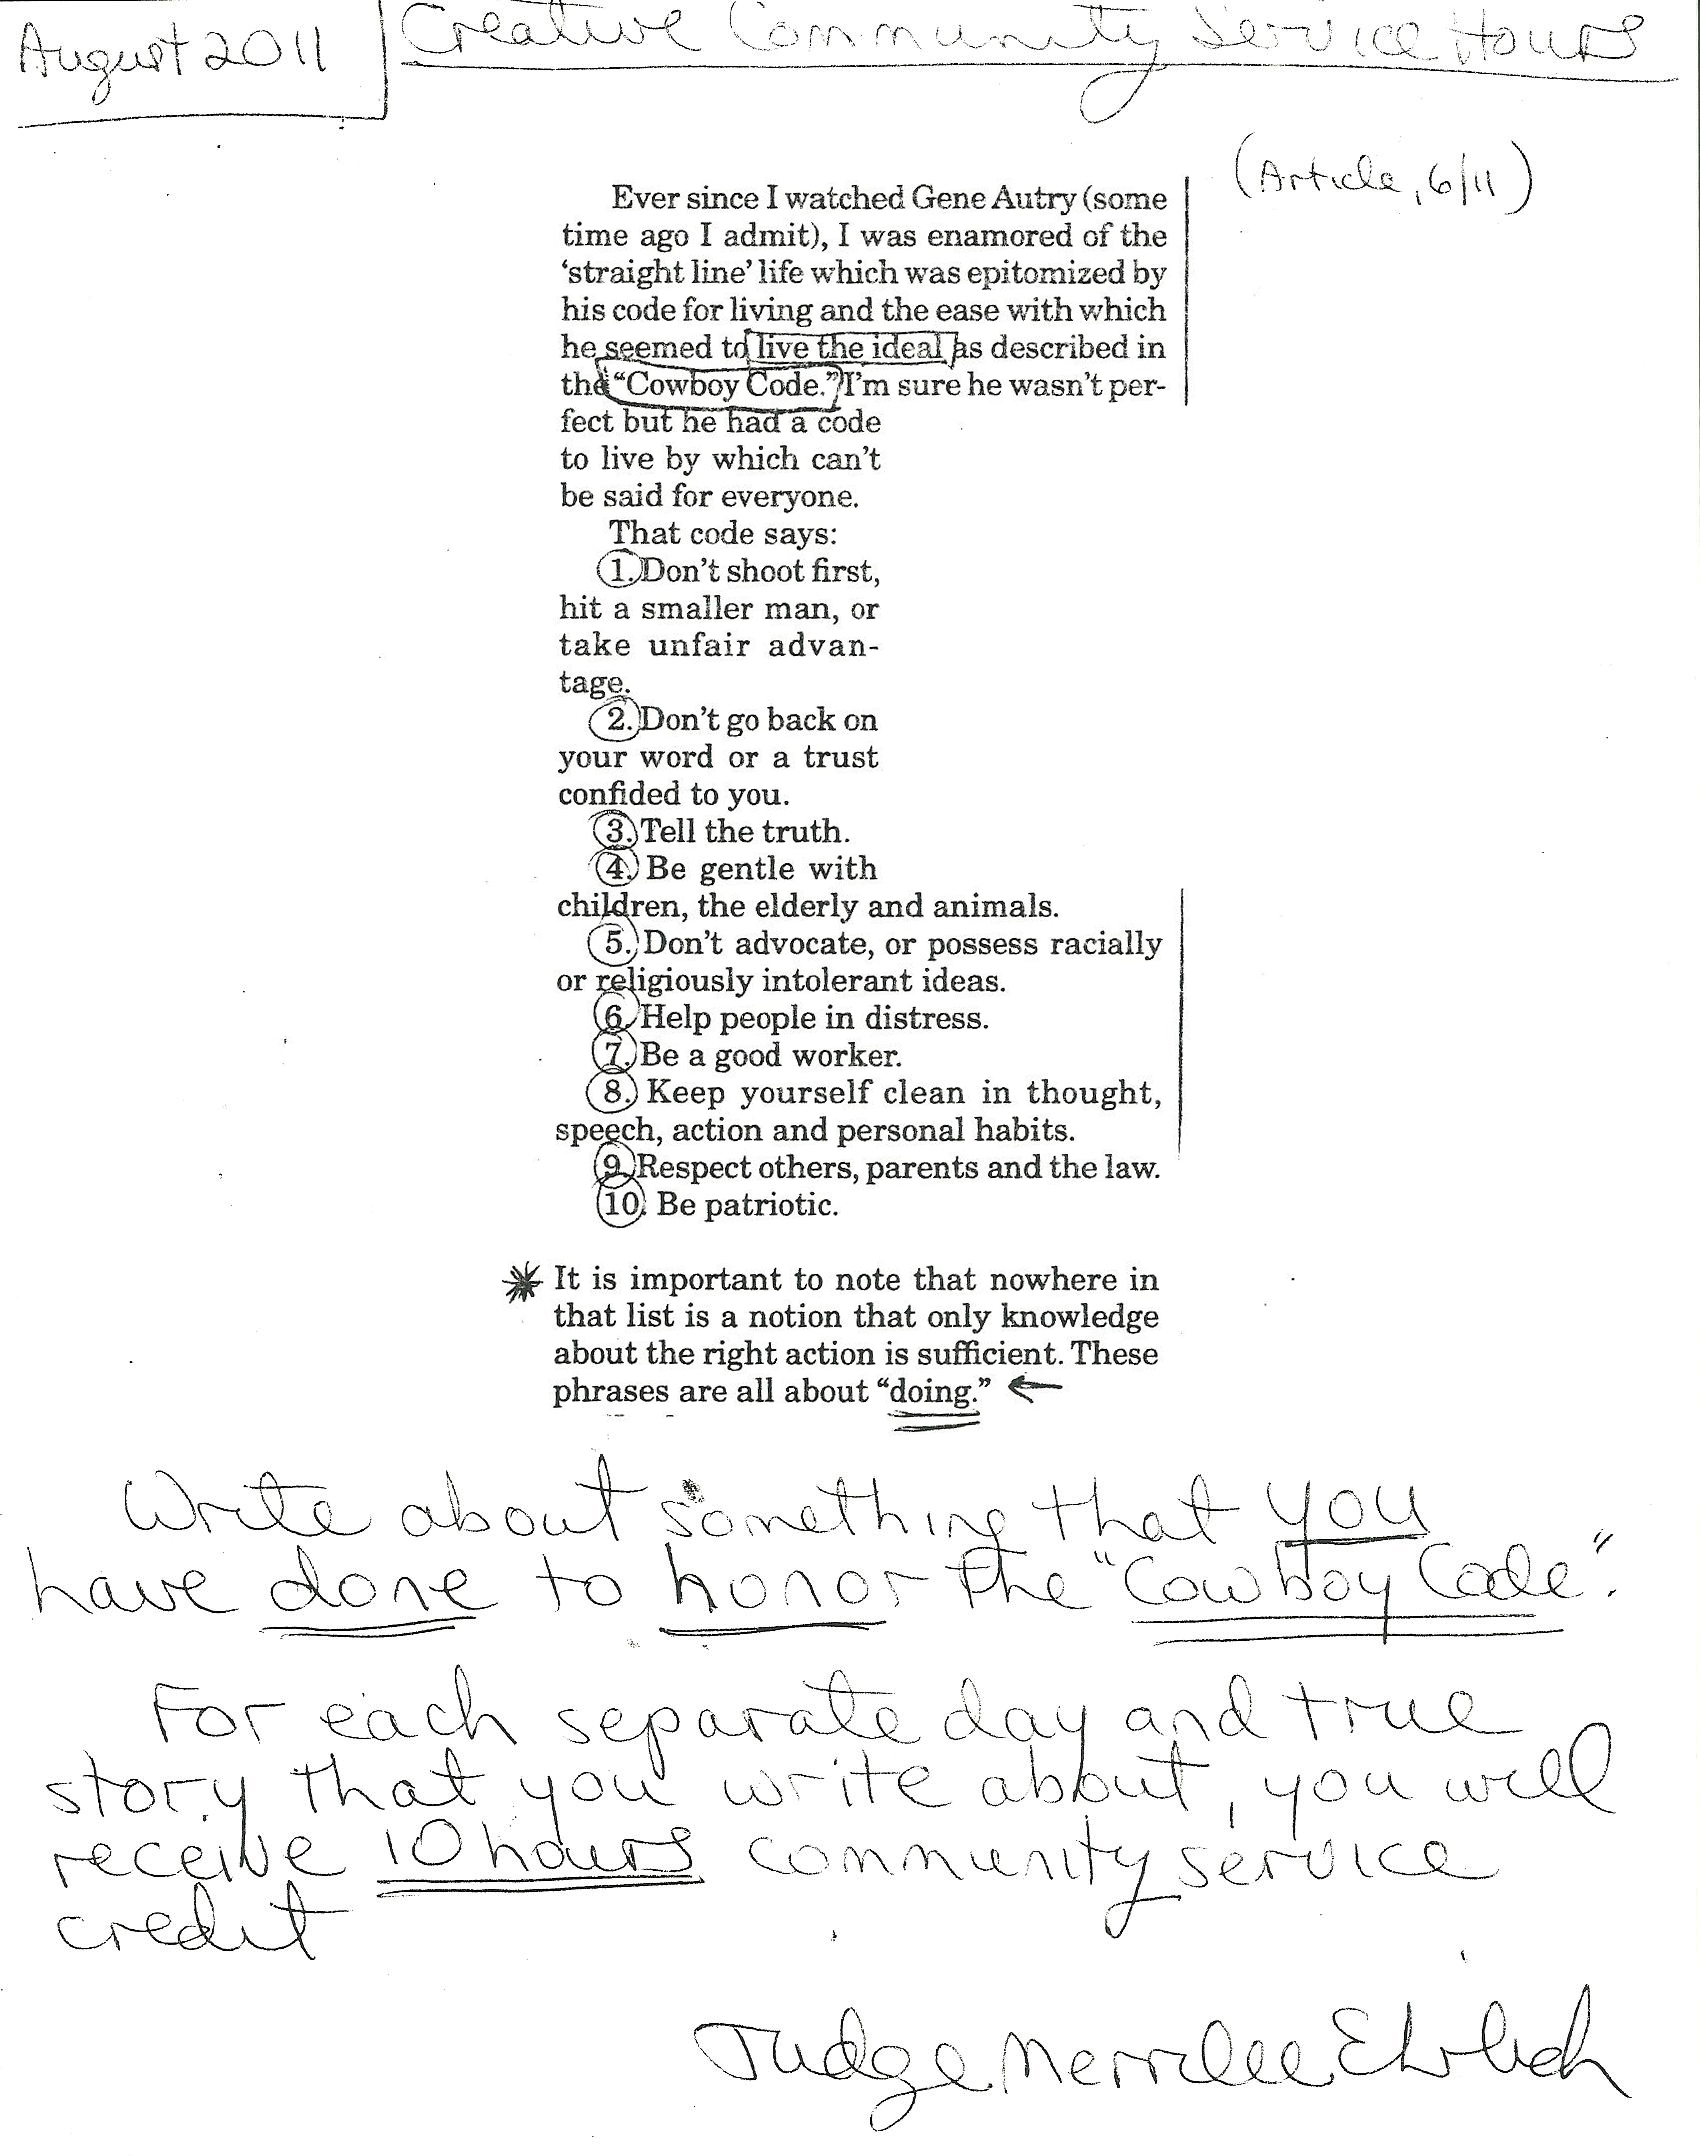 August 2011
Creative Community Service Hours
(Article, 6/11)
Ever since I watched Gene Autry (some
time ago I admit), I was enamored of the
‘straight line’ life which was epitomized by
his code for living and the ease with which
he seemed to live the ideal as described in
the “Cowboy Code.” I’m sure he wasn’t per-
fect but he had a code
to live by which can’t
be said for everyone.
That code says:
1. Don’t shoot first,
hit a smaller man, or
take unfair advan-
tage.
2. Don’t go back on
your word or a trust
confided to you.
3. Tell the truth.
4. Be gentle with
children, the elderly and animals.
5. Don’t advocate, or possess racially
or religiously intolerant ideas.
6. Help people in distress.
7. Be a good worker.
8. Keep yourself clean in thought,
speech, action and personal habits.
9. Respect others, parents and the law.
10. Be patriotic.
It is important to note that nowhere in
that list is a notion that only knowledge
about the right action is sufficient. These
phrases are all about “doing.”
Write about something that you
have done to honor the "Cowboy Code".
For each separate day and true
story that you write about, you will
receive 10 hours community service
credit
Judge Merrilee Ehrlich